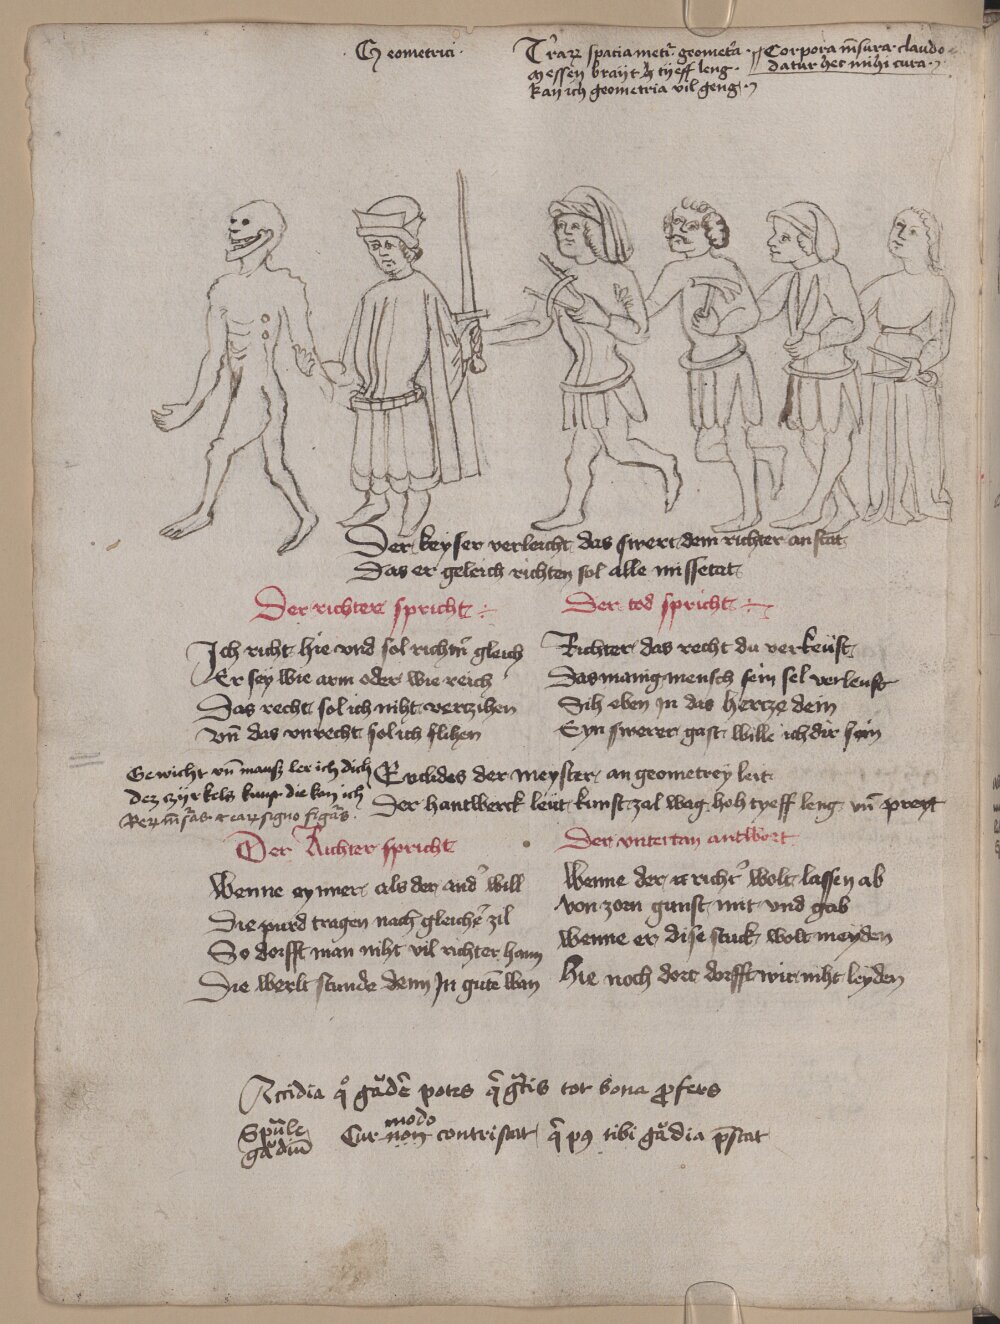 Geometrici
Terrarum spacia metior geometra
Messen brayt vnd tyeff leng
kan ich geometria vil geng
Corpora mensura claudo
datur hec mihi cura
Der keyser verleicht das swert dem richter an stat
Das er geleich richten sol alle missetat
Der richter spricht
Ich richt hie vnd sol richtñ gleich
Er sey wie arm oder wie reich
Das recht sol ich niht verczihen
vñ das vnrecht sol ich flihen
Der tod spricht
Richter das recht du verkeüst
Das manig mensch sein sel verleust
Sih eben in das hertze dein
Eyn swerer gast wille ich dir sein
Gewicht vñ mausz ler ich dich
Dez czyrkels kunst die kan ich
signo figuras
Euclides der meyster an geometrey leit
Der hantwerck leüt kunst zal wag hoh tyeff leng vñ preyt
Der Richter spricht
Wenne eynner als der and' will
Die purd tragen nach gleichē zil
So dorfft man niht vil richter hann
Die werlt stunde denn In gutē wan
Der vntertan antwort
Wenne der richt' wolt lassen ab
von zorn gunst mit vnd gab
Wenne er dise stuck wolt meyden
Hie noch dort dorfft wir niht leyden
Accidia potes tot bona profers
Spūle
modo
Cur non contristat tibi p̄stat